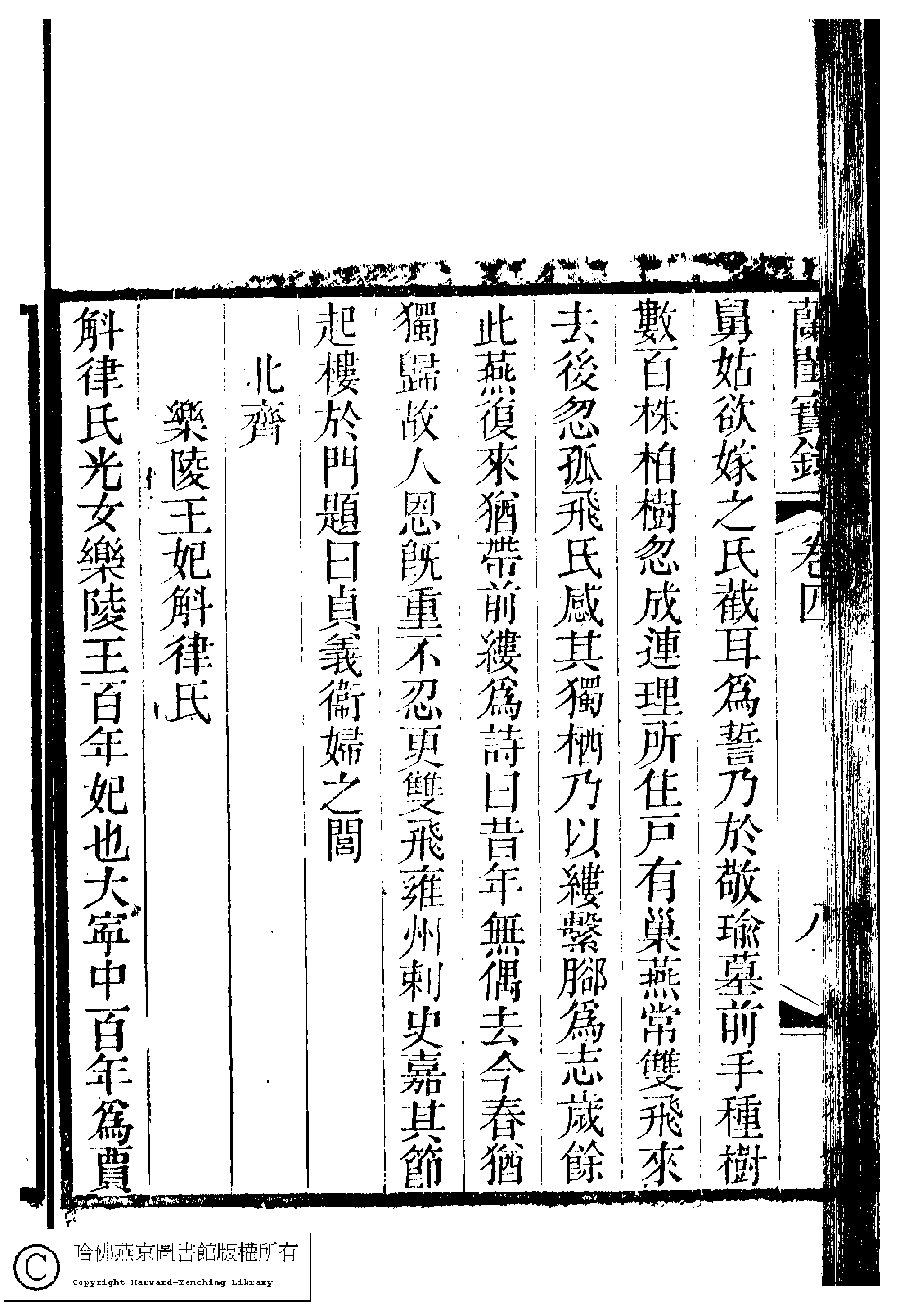 蘭閨寶錄 卷四 八
舅姑欲嫁之氏截耳爲誓乃於敬瑜墓前手種樹
數百株柏樹忽成連理所住戸有巢燕常雙飛來
去後忽孤飛氏感其獨栖乃以縷繫腳爲志歲餘
此燕復來猶帶前縷爲詩曰昔年無偶去今春猶
獨歸故人恩旣重不忍更雙飛雍州刺史嘉其節
起樓於門題曰貞義衞婦之閭
北齊
樂陵王妃斛律氏
斛律氏光女樂陵王百年妃也大寧中百年爲賈
哈佛燕京圖書館版權所有
Copyright Harvard-Yenching Library